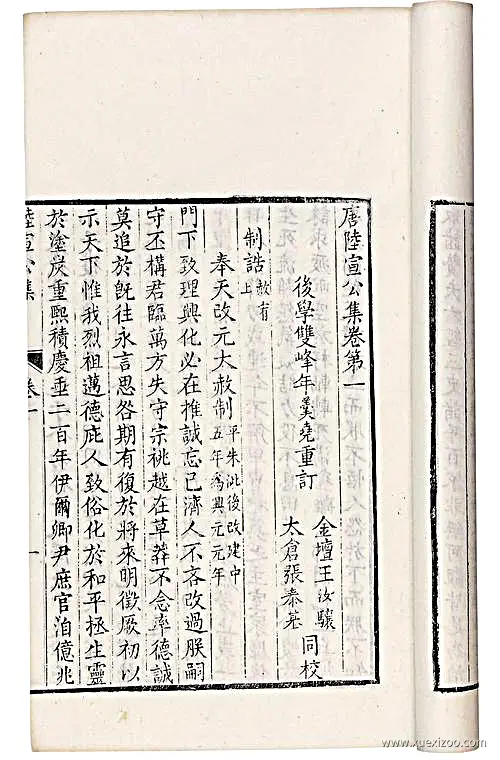 唐陸宣公集卷第一
後學雙峰年羹堯重訂
金壇王汝驤
太倉張泰基
同校
制誥
赦宥
上
奉天改元大赦制
平朱泚後改建中
五年為興元元年
門下致理興化必在推誠忘己濟人不吝改過朕嗣
守丕構君臨萬方失守宗祧越在草莽不念率德誠
莫追於旣往永言思咎期有復於將來明徵厥初以
示天下惟我烈祖邁德庇人致俗化於和平拯生靈
於塗炭重熙積慶垂二百年伊爾卿尹庶官洎億兆
陸宣公集
卷一
一
www.xuexizoo.com